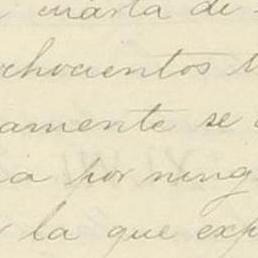 cuarta de
ochocientos
amente se
a por ning
la que exp